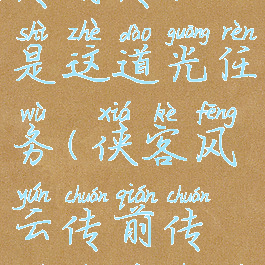 shì zhè dào guāng rèn
是这道光任
wù xiá kè fēng
务(侠客风
yún chuán qián chuán
云传前传